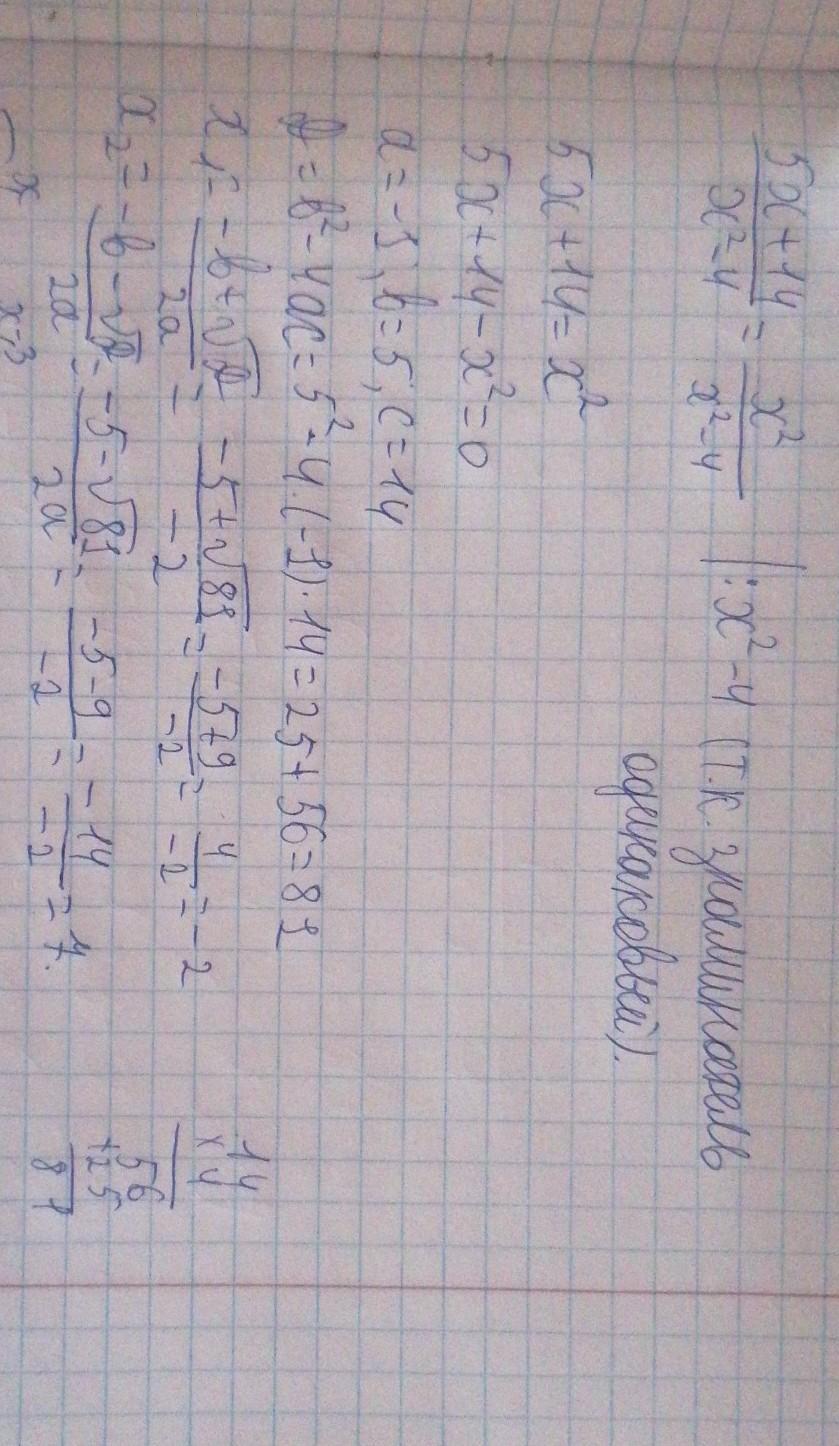 (5x+14)/(x²-4) = x²/(x²-4) |:x²-4 (т.к. знаминатель
одинаковый).
5x+14=x²
5x+14-x²=0
a=-1, b=5, c=14
D=b²-4ac=5²-4·(-1)·14=25+56=81
x₁=(-b+√D)/2a=(-5+√81)/-2=(-5+9)/-2=4/-2=-2
x₂=(-b-√D)/2a=(-5-√81)/2a=(-5-9)/-2=-14/-2=7.
14
×4
56
+25
81